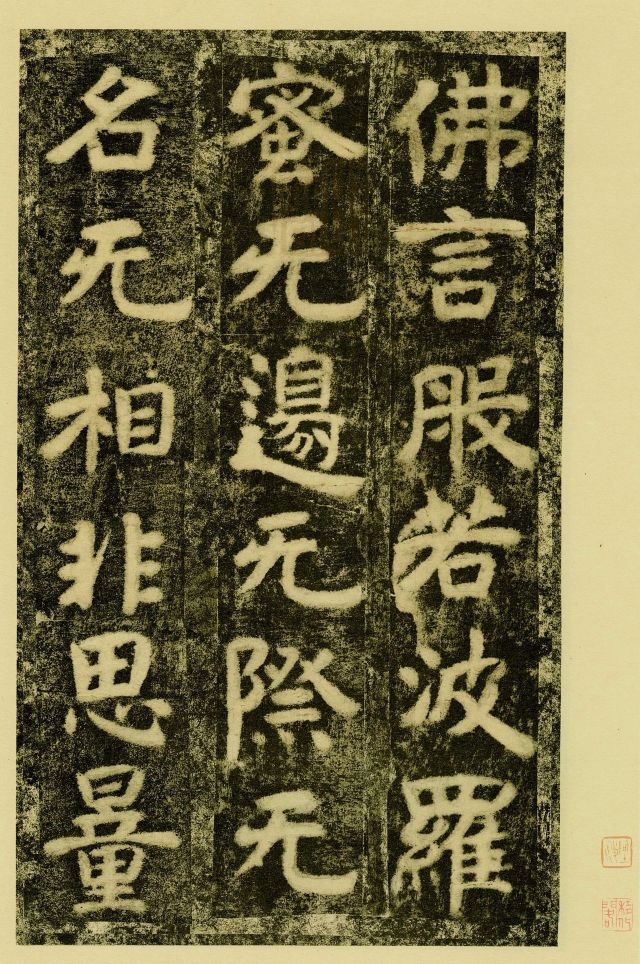 佛言服若波羅
蜜无邊无際无
名无相非思量